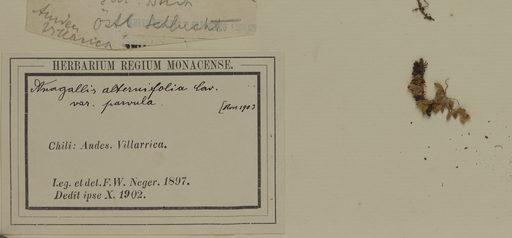 Östl. Schlucht
Anden
Villarica
HERBARIUM REGIUM MONACENSE.
Anagallis alternifolia Cav.
var. parvula.
Chili: Andes. Villarrica.
Leg. et det. F. W. Neger. 1897.
Dedit ipse X. 1902.